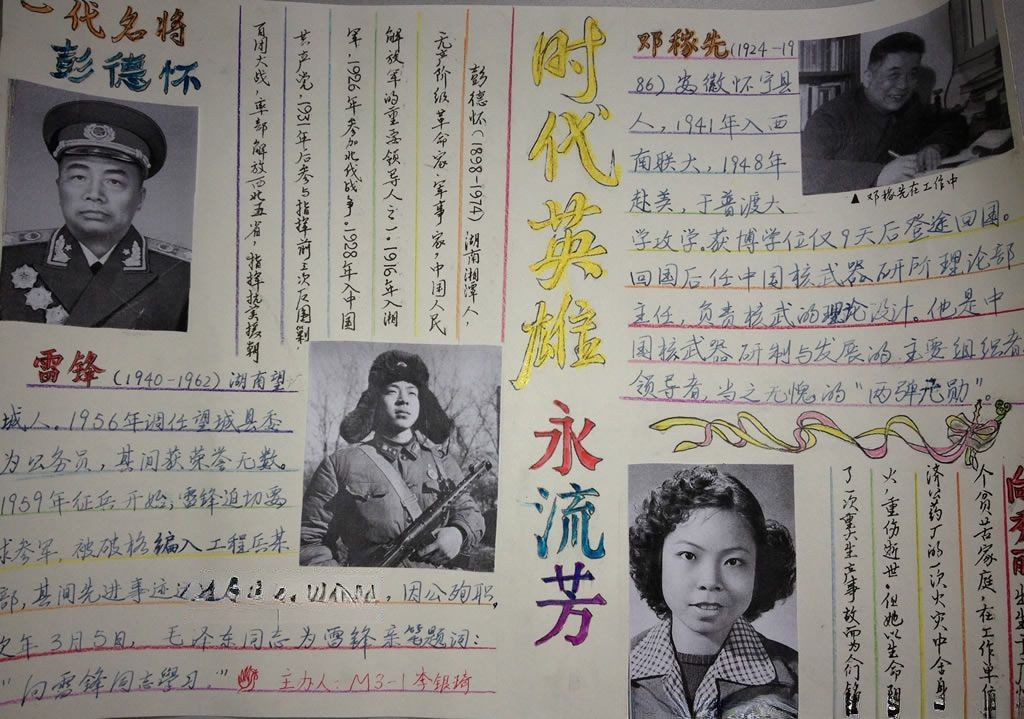 一代名将
彭德怀
彭德怀(1898-1974)湖南湘潭人,
无产阶级革命家,军事家,中国人民
解放军的重要领导人之一.1916年入湘
军,1926年参加北伐战争.1928年入中国
共产党,1931年后参与指挥前三次反围剿,
百团大战,率部解放西北五省,指挥抗美援朝
时代英雄
永流芳
邓稼先(1924-19
86)安徽怀宁县
人,1941年入西
南联大,1948年
赴美,于普渡大
学攻学.获博学位仅9天后登途回国。
回国后任中国核武器研所理论部
主任,负责核武的理论设计。他是中
国核武器研制与发展的主要组织者
领导者,当之无愧的“两弹元勋”。
▲邓稼先在工作中
雷锋(1940-1962)湖南望
城人。1956年调任望城县委
为公务员,其间获荣誉无数。
1959年征兵开始,雷锋迫切要
求参军,被破格编入工程兵某
部,其间先进事迹 ,因公殉职,
次年3月5日,毛泽东同志为雷锋亲笔题词:
“向雷锋同志學习.”
主办人:M3-1李银琦
向秀丽 出生于广州
个贫苦家庭.在工作单位
济公药厂的一次火灾中全身
火,重伤逝世.但她以生命
了一次重大生产事故而为人们